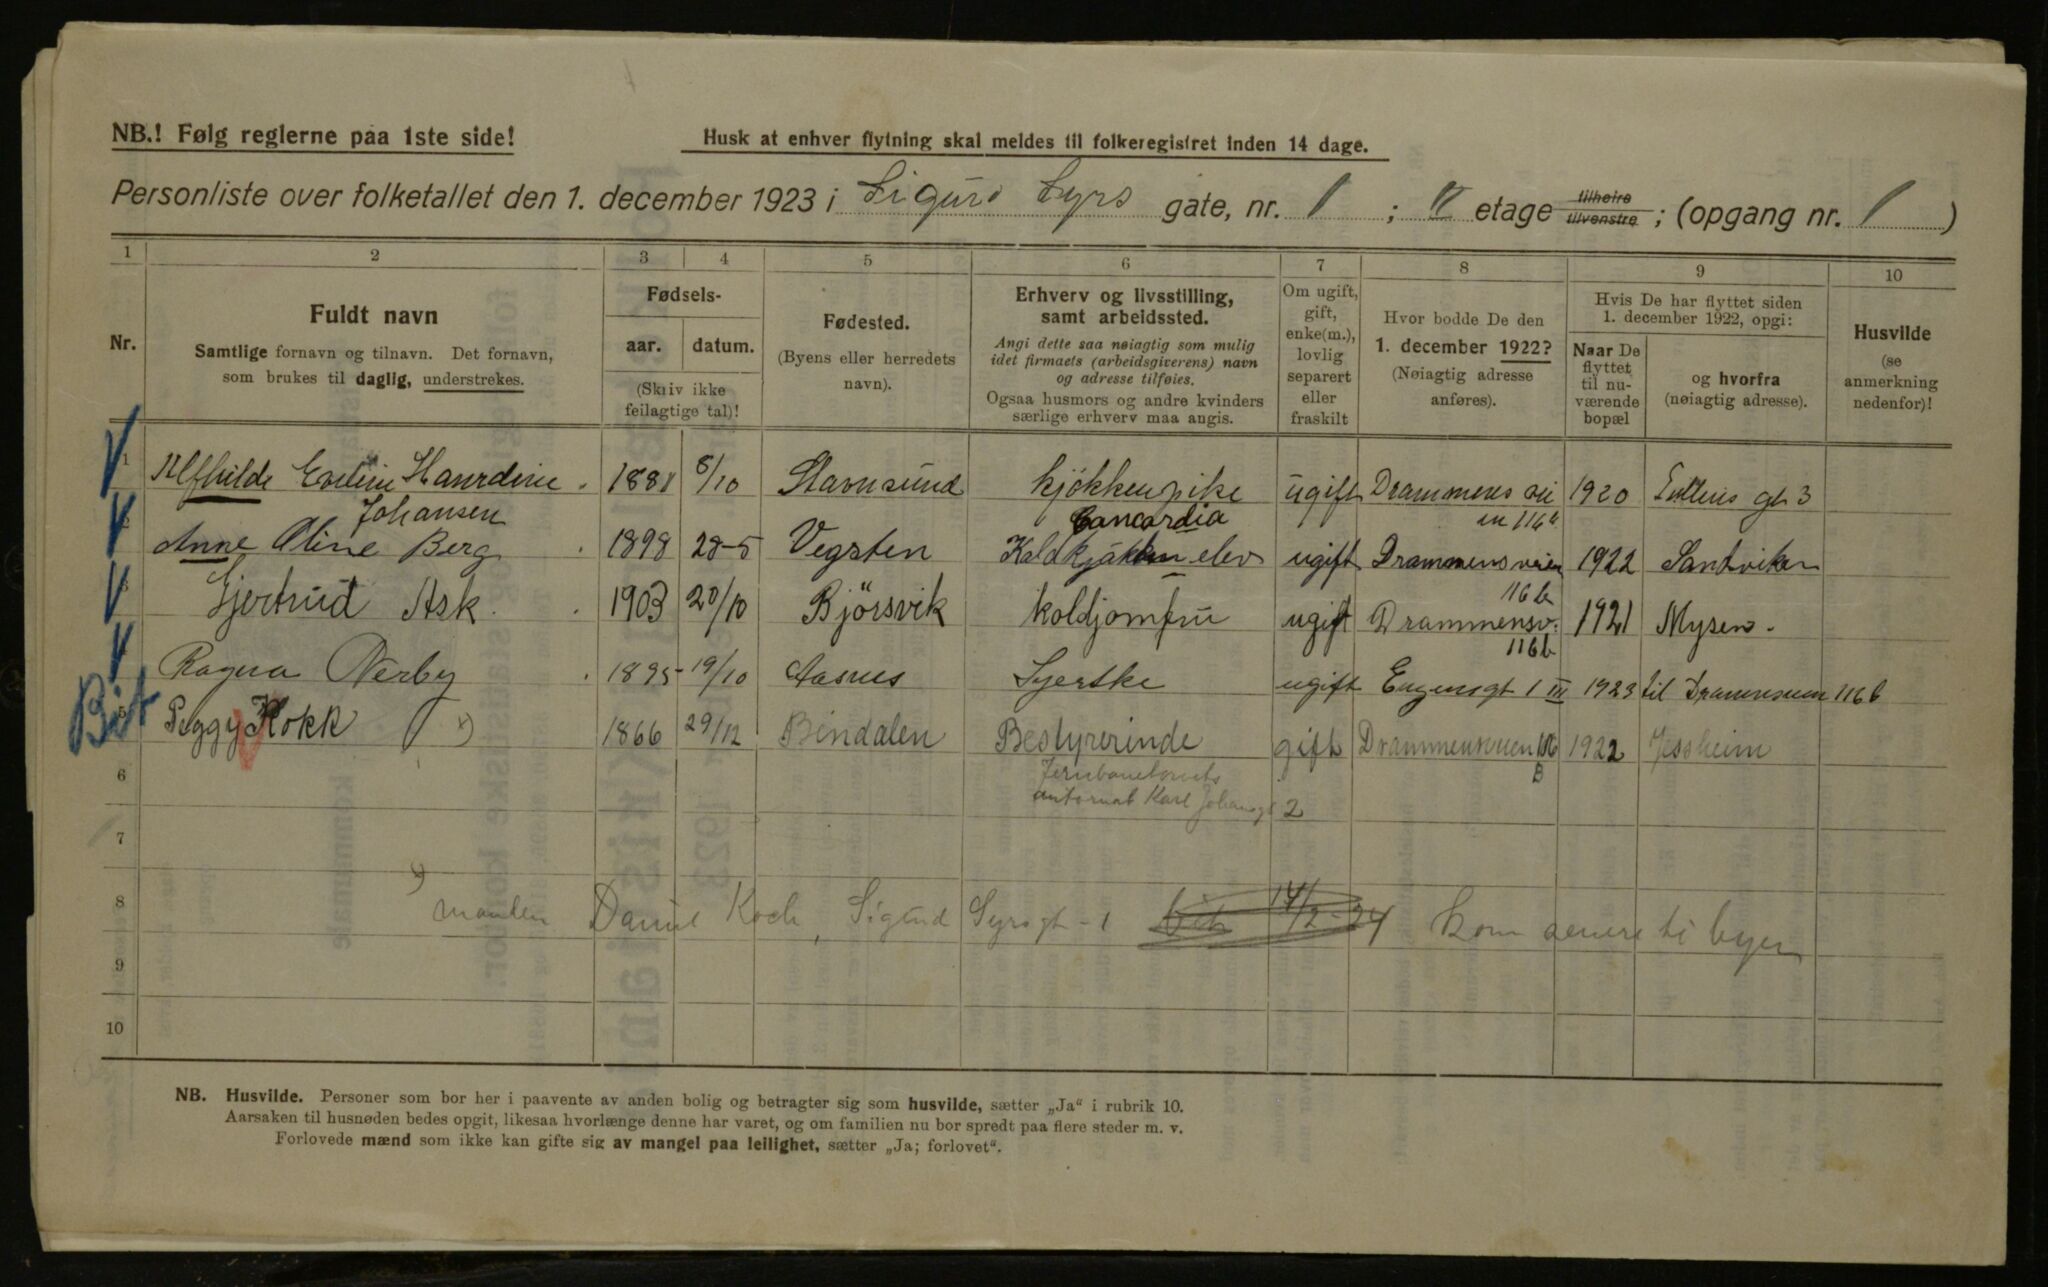 NB.! Følg reglerne paa 1ste side!
Husk at enhver flytning skal meldes til folkeregistret inden 14 dage.
Personliste over folketallet den 1. december 1923 i Sigurd Syrs gate, nr. 1 ; II etage tilhøire tilvenstre ; (opgang nr. 1 )
1 2 3 4 5 6 7 8 9 10
Nr.
Fuldt navn
Samtlige fornavn og tilnavn. Det fornavn,
som brukes til daglig, understrekes.
Fødsels-
aar. datum.
(Skriv ikke
feilagtige tal)!
Fødested.
(Byens eller herredets
navn).
Erhverv og livsstilling,
samt arbeidssted.
Angi dette saa nøiagtig som mulig
idet firmaets (arbeidsgiverens) navn
og adresse tilføies.
Ogsaa husmors og andre kvinders
særlige erhverv maa angis.
Om ugift,
gift,
enke(m.),
lovlig
separert
eller
fraskilt
Hvor bodde De den
1. december 1922?
(Nøiagtig adresse
anføres).
Hvis De har flyttet siden
1. december 1922, opgi:
Naar De
flyttet
til nu-
værende
bopæl
og hvorfra
(nøiagtig adresse).
Husvilde
(se
anmerkning
nedenfor)!
1 Alfhilde Eveline Haurdine Johansen 1881 8/10 Stavnsund kjøkkenpike ugift Drammens vei 1920 gt 3
116b
Concordia
2 Anne Oline Berg 1898 28-5 Vegsten Koldkjøkken elev ugift Drammensveien 1922 Sandviken
116b
3 Gjertrud Ask 1903 20/10 Bjørsvik koldjomfru ugift Drammensv. 1921 Mysen
116b
Ragna Nerby 1895 19/10 Aasnes Syerske ugift Eugensgt 1 III 1923 til Drammensveien 116b
Bit 5 Peggy Kokk x) 1866 29/12 Bindalen Bestyrerinde gift Drammensveien 116 B 1922 Jessheim
6 Jernbanetorvets
automat Karl Johansgt 2
7
8 x) manden Daniel Koch, Sigurd Syrsgt - 1 bit 14/2-24 kom senere til byen
9
10
NB. Husvilde. Personer som bor her i paavente av anden bolig og betragter sig som husvilde, sætter „Ja“ i rubrik 10.
Aarsaken til husnøden bedes opgit, likesaa hvorlænge denne har varet, og om familien nu bor spredt paa flere steder m. v.
Forlovede mænd som ikke kan gifte sig av mangel paa leilighet, sætter „Ja; forlovet“.